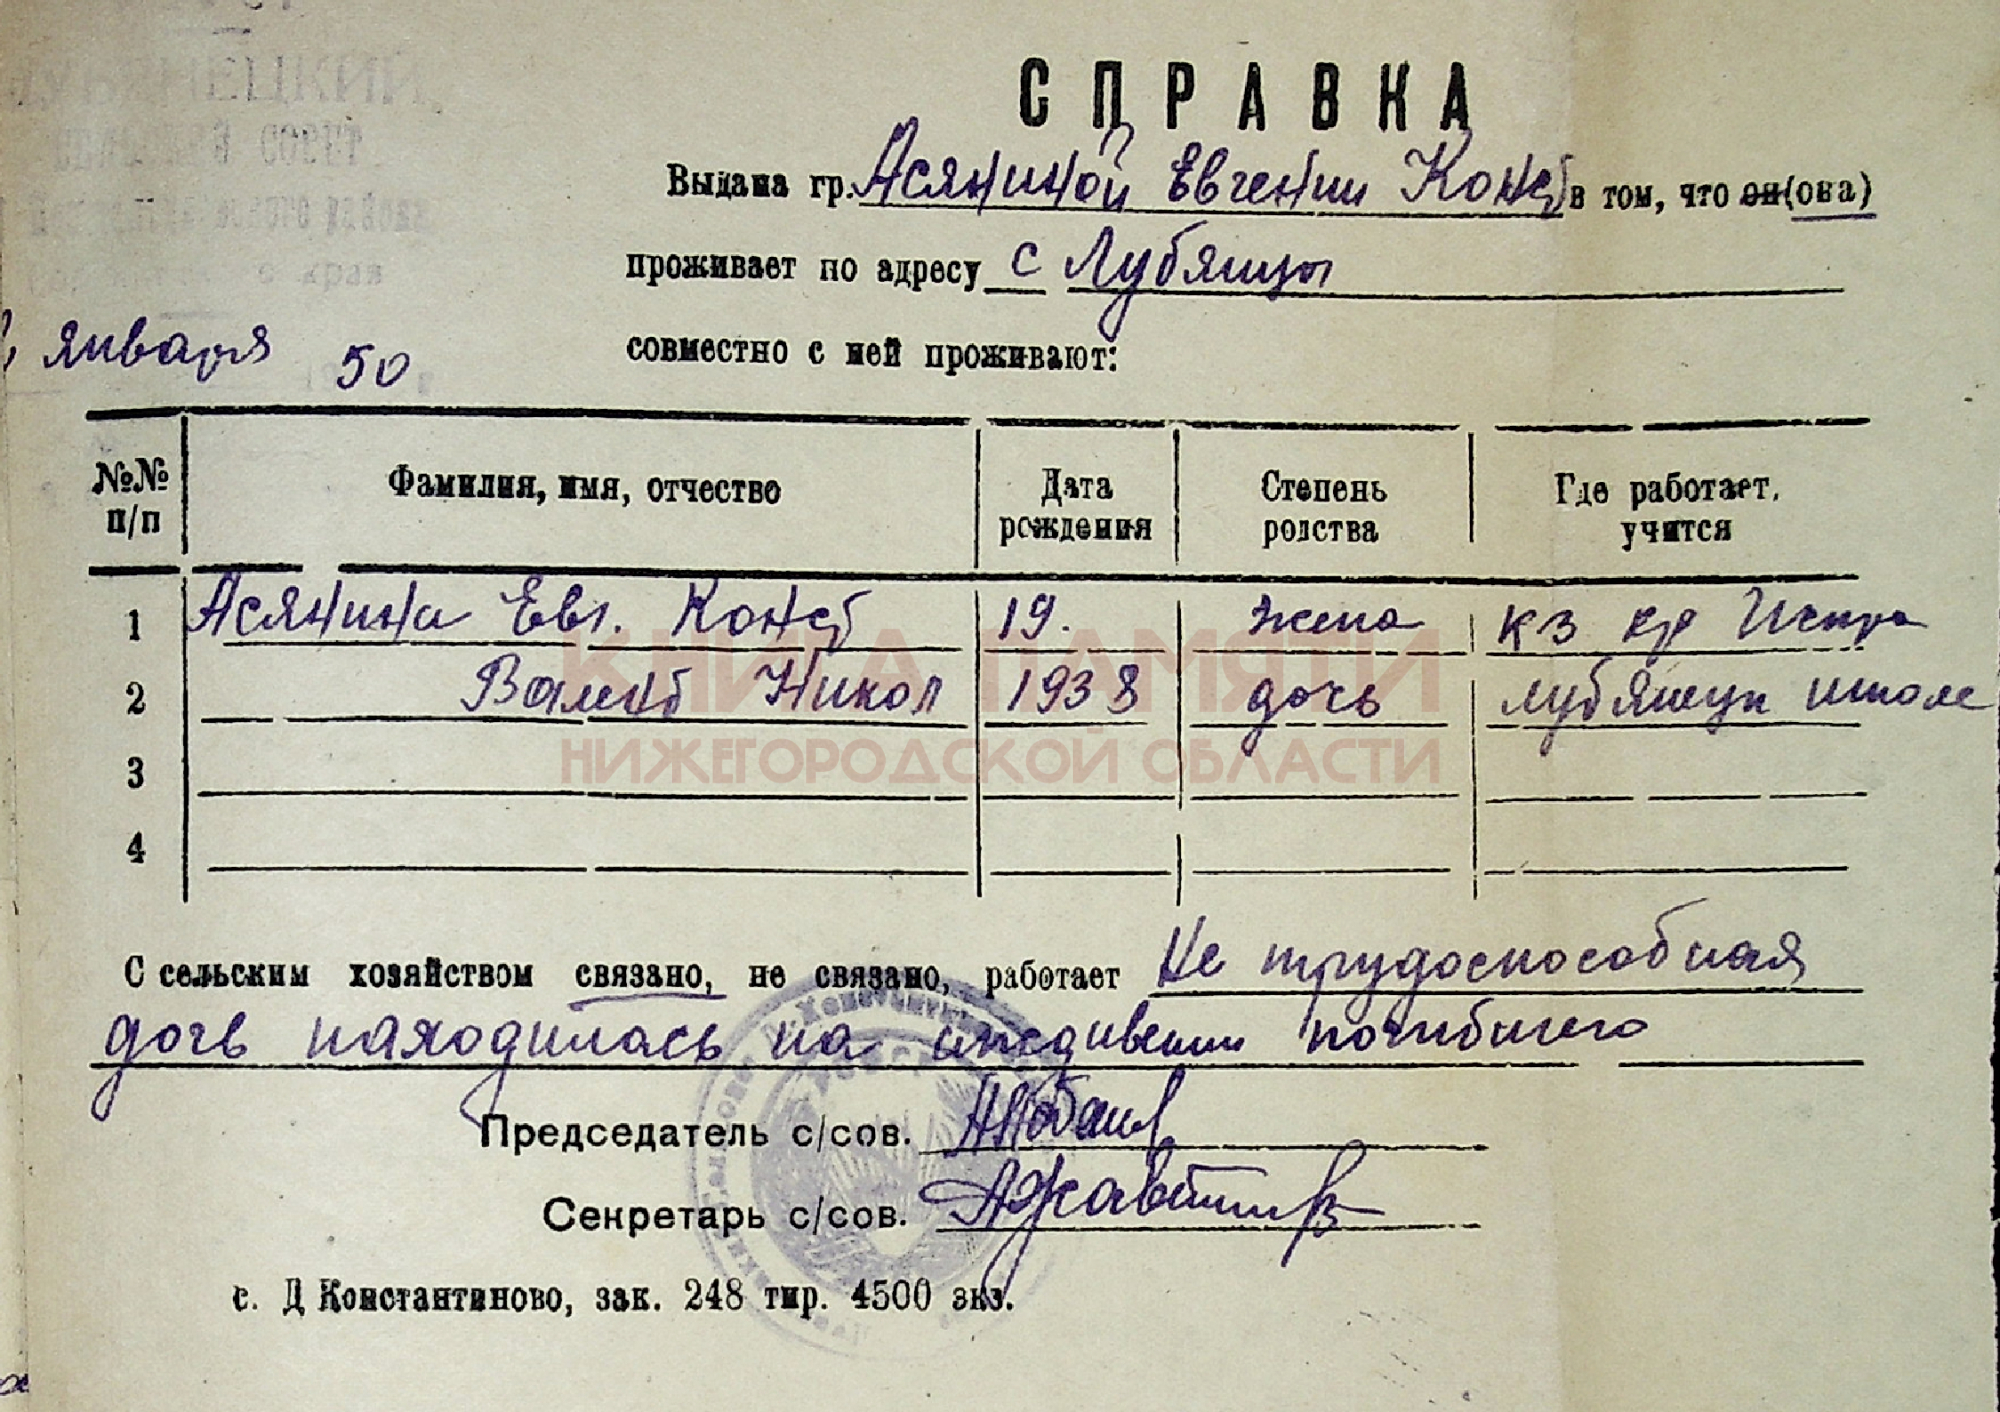 СОВЕТ
района
края
января 50
СПРАВКА
Выдана гр. Асяниной Евгении Конст в том, что он (она)
проживает по адресу с Лубянцы
совместно с ней проживают:
№№ п/п Фамилия, имя, отчество Дата рождения Степень родства Где работает, учится
1 Асянина Евг. Конст 19. жена кз кр Искра
2 Валент Никол 1938 дочь школе
3
4
С сельским хозяйством связано, не связано, работает Не трудоспособная
дочь находилась на иждивении погибшего
Председатель с/сов.
Секретарь с/сов.
с. Д Константиново, зак. 248 тир. 4500 экз.
КНИГА ПАМЯТИ
НИЖЕГОРОДСКОЙ ОБЛАСТИ